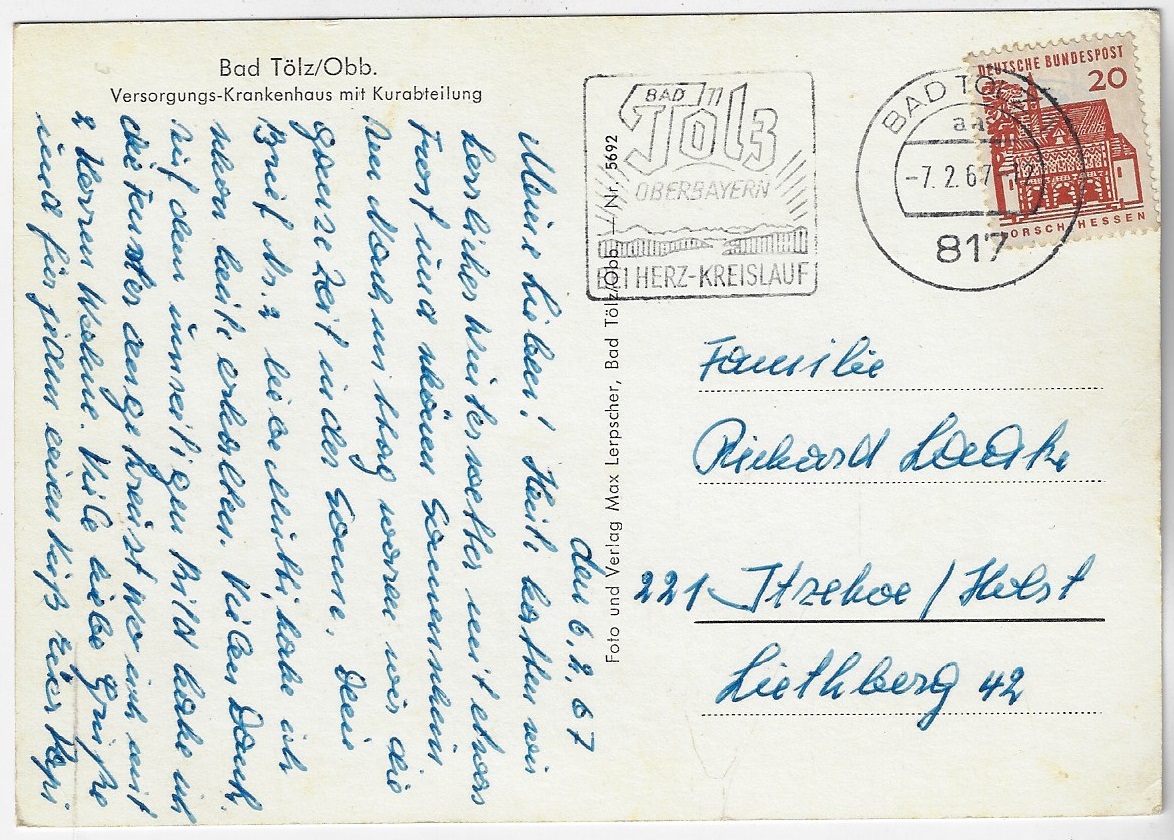 Bad Tölz/Obb.
Versorgungs-Krankenhaus mit Kurabteilung
den 6.2.67
Meine Lieben! Heute hatten wir
herrliches Winterwetter mit etwas
Frost und schönen Sonnenschein
Am Nachmittag waren wir die
ganze Zeit in der Sonne. Dein
Brief liebe Mutti habe ich
schon heute erhalten. Vielen Dank
Auf dem umseitigen Bild habe ich
die Fenster angekreuzt wo ich mit
2 Herren wohne. Viele liebe Grüße
und für jeden einen Kuß Euer Papi
Foto und Verlag Max Lerpscher, Bad Tölz/Obb. — Nr. 5692
BAD
Tölz
OBERBAYERN
BEI HERZ-KREISLAUF
BAD TÖLZ
-7.2.67
817
DEUTSCHE BUNDESPOST
20
LORSCH HESSEN
Familie
Richard
221 Itzehoe / Holst
Liethberg 42